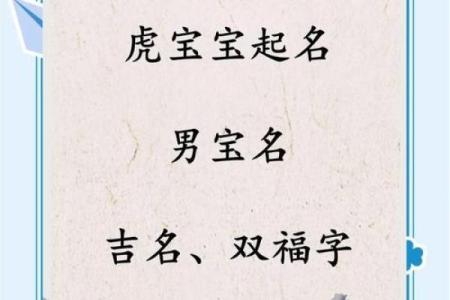 虎宝宝起名
男宝名
吉名、双福字